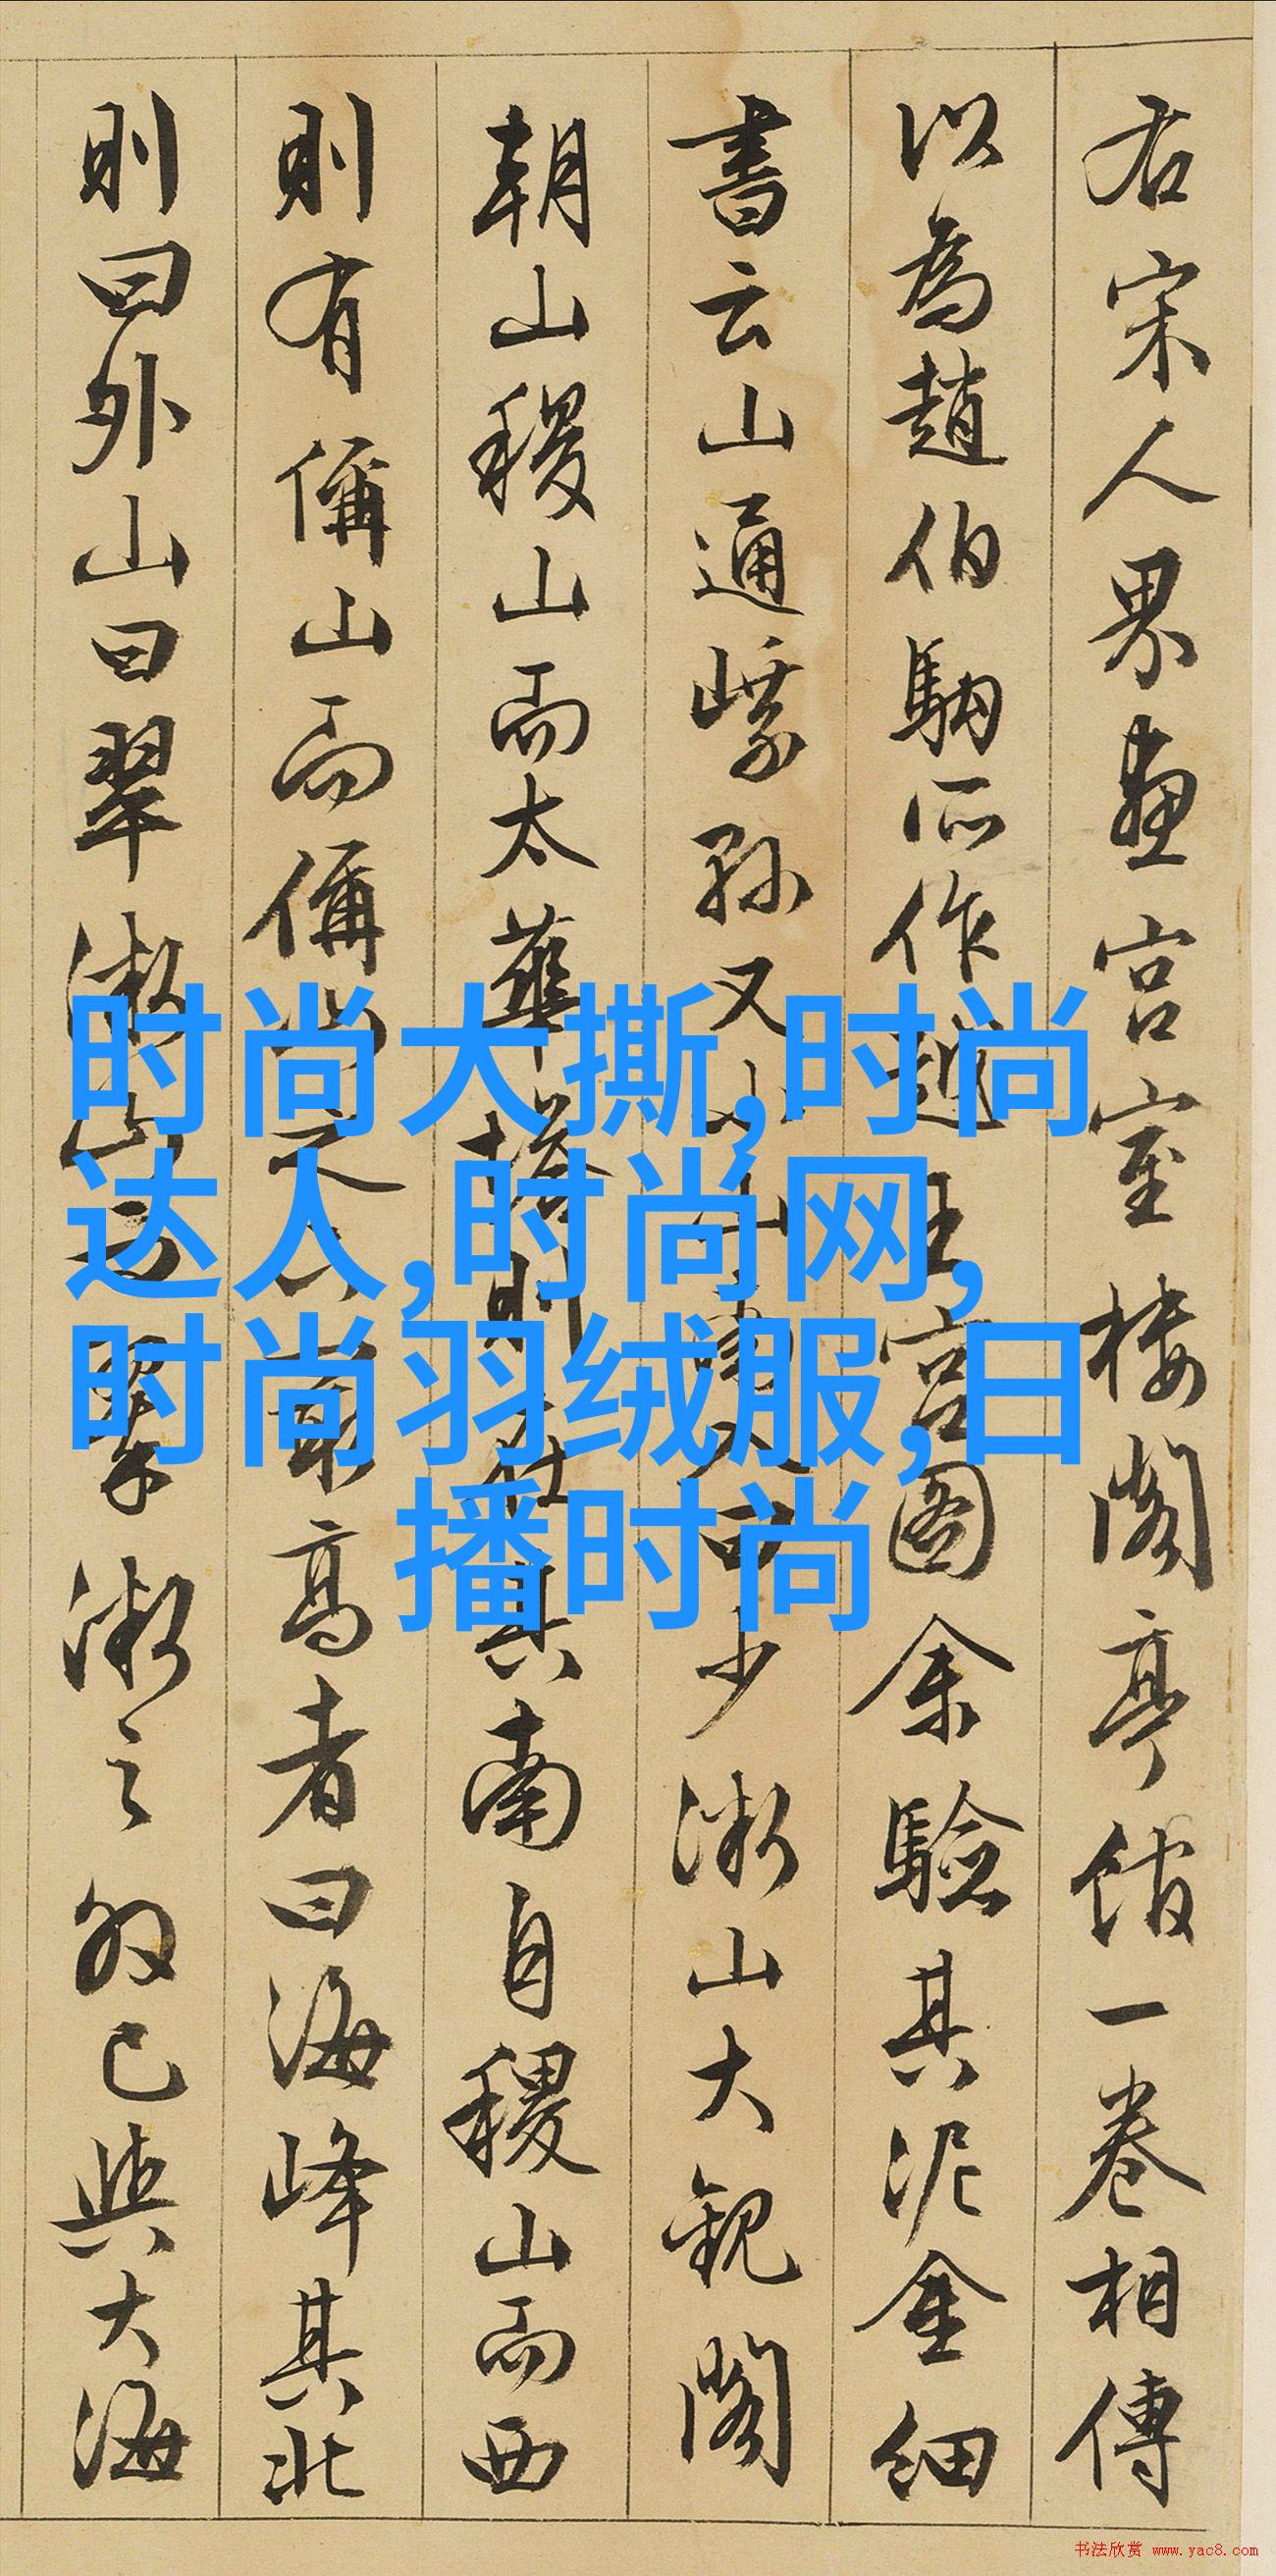 右宋人界畫宮室樓閣亭館一卷相傳
以為趙伯駒所作越王宮圖余驗其泥金細
書云山通
又曰少漱山大觀閣
朝山稷山而太華
則在其南自稷山而西
則有偁山而偁
最高者曰海峰其北
則曰外山曰翠漱山
翠漱之
已與大海
时尚大撕,时尚
达人,时尚网,
时尚羽绒服,日
播时尚
书法欣赏 www.yac8.com